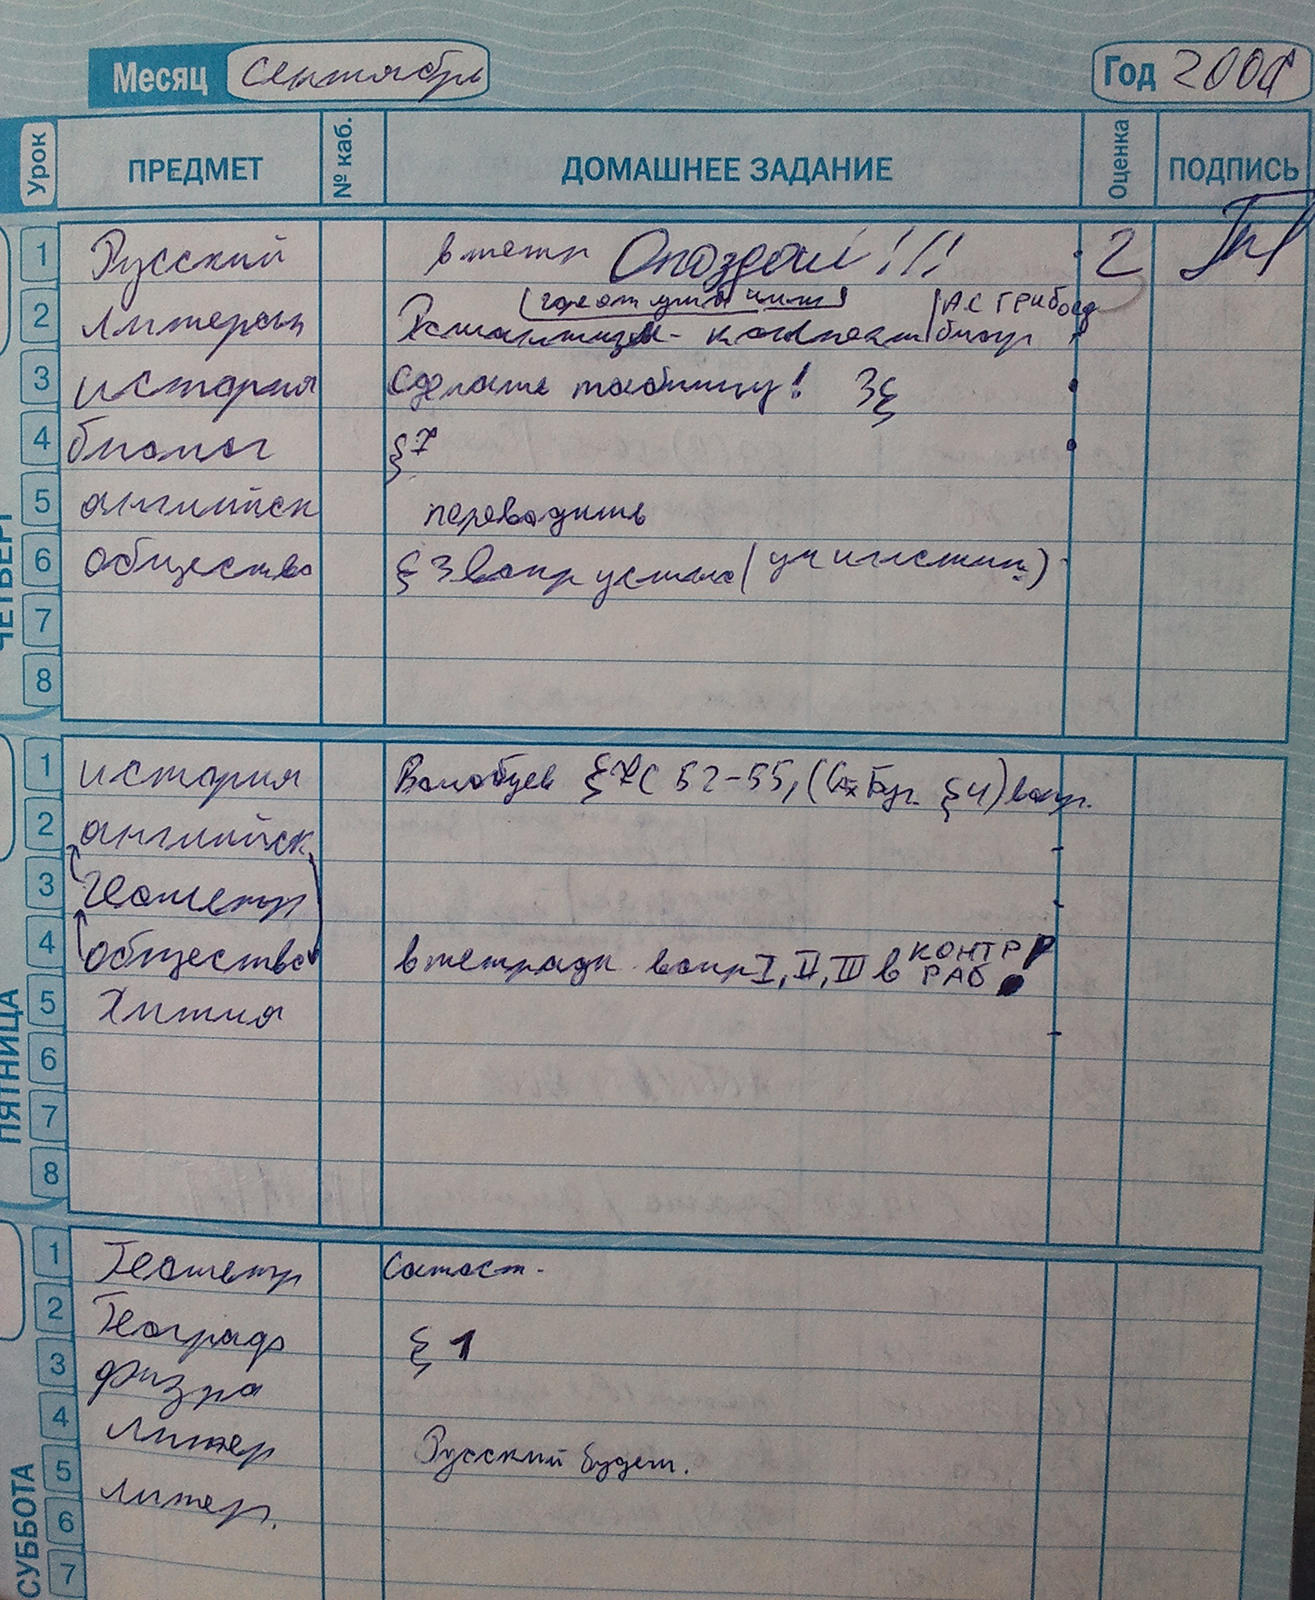 Месяц сентябрь Год
Урок ПРЕДМЕТ № каб. ДОМАШНЕЕ ЗАДАНИЕ Оценка ПОДПИСЬ
ЧЕТВЕРГ
1 Русский в тетр Опоздал!!! 2
(горе от ума читать) АС ГРИбоед
2 Литерат Романтизм - конспект биогр
3 история сделать таблицу! 3§
4 биолог §7
5 английск переводить
6 общество §3 вопр устно (
7
8
ПЯТНИЦА
1 история Волобуев §7 С 52-55, ( §4) вопр.
2 английск
3 геометр
4 общество в тетради вопр I, II, III в КОНТР
РАБ!
5 Химия
6
7
8
СУББОТА
1 Геометр Самост.
2 Географ § 1
3 физра
4 Литер Русский будет.
5 литер.
6
7